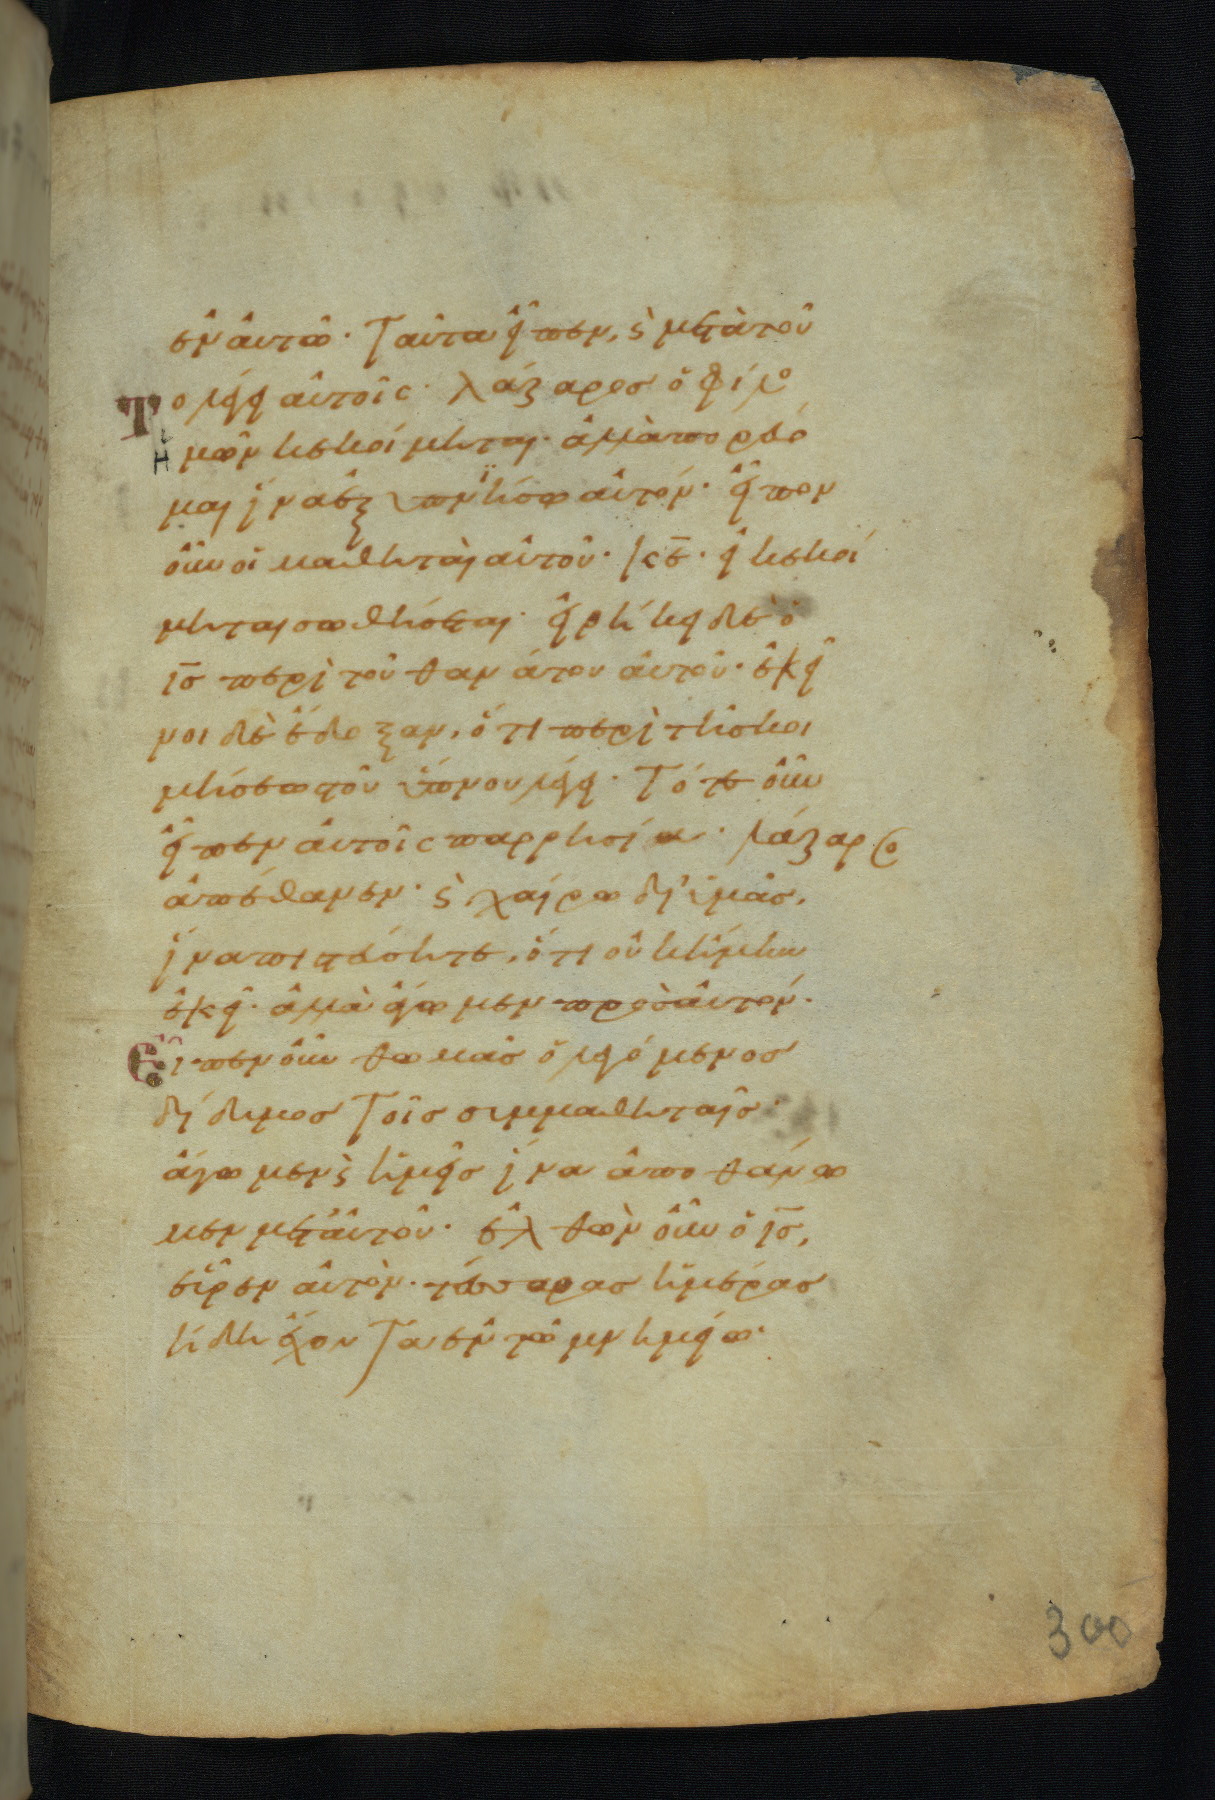 ἐν αὐτῶ· Ταῦτα εἶπεν, ϗ μετὰ τοῦ
το λέγει αὐτοῖς· λάζαρος ὁ φίλο
ἡμῶν κεκοίμηται· ἀλλὰ πορεύο
μαι ἵνα ἐξυπνήσω αὐτόν· εἶπον
οὖν οἱ μαθηταὶ αὐτοῦ· κε̅· εἰ κεκοί
μηται σωθήσεται· εἰρήκει δὲ ὁ
ις̅ περὶ τοῦ θανάτου αὐτοῦ· ἐκεῖ
νοι δὲ ἔδοξαν, ὅτι περὶ τῆς κοι
μήσεως τοῦ ὕπνου λέγει· Τότε οὖν
εἶπεν αὐτοῖς παρρησία· λάζαρος
ἀπέθανεν· ϗ χαίρω δι' ὑμᾶς,
ἵνα πιστεύσητε, ὅτι οὐκ ἤμην
ἐκεῖ· ἀλλὰ ἄγωμεν πρὸς αὐτόν·
Εἶπεν οὖν θωμᾶς ὁ λεγόμενος
δίδυμος Τοῖς συμμαθηταῖς·
ἄγωμεν ϗ ἡμεῖς ἵνα ἀποθάνω
μεν μετ' αὐτοῦ· ἐλθὼν οὖν ὁ ις̅,
εὗρεν αὐτὸν· τέσσαρας ἡμέρας
ἤδη ἔχοντα ἐν τῶ μνημείω·
300